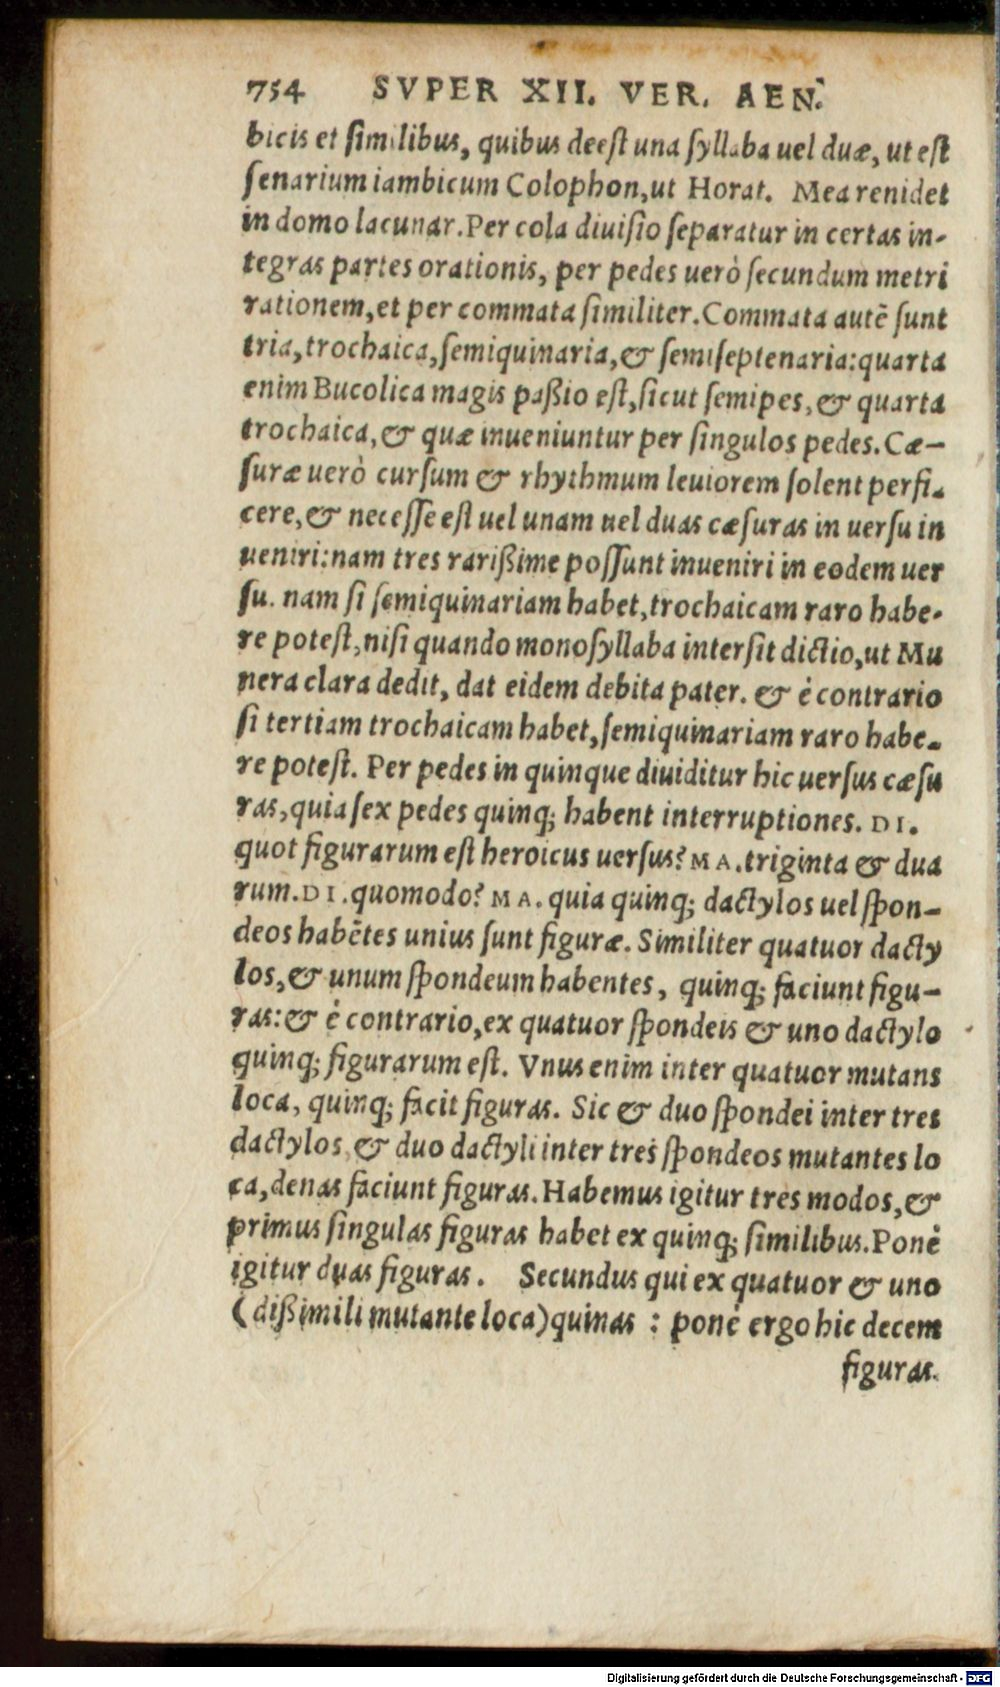 754 SVPER XII. VER. AEN.
bicis et ſimilibus, quibus deeſt una ſyllaba uel duæ, ut eſt
ſenarium iambicum Colophon, ut Horat. Mea renidet
in domo lacunar. Per cola diuiſio ſeparatur in certas in-
tegras partes orationis, per pedes uerò ſecundum metri
rationem, et per commata ſimiliter. Commata autē ſunt
tria, trochaica, ſemiquinaria, & ſemiſeptenaria: quarta
enim Bucolica magis paßio eſt, ſicut ſemipes, & quarta
trochaica, & quæ inueniuntur per ſingulos pedes. Cæ-
ſuræ uerò curſum & rhythmum leuiorem ſolent perfi-
cere, & neceſſe eſt uel unam uel duas cæſuras in uerſu in
ueniri: nam tres rarißime poſſunt inueniri in eodem uer
ſu. nam ſi ſemiquinariam habet, trochaicam raro habe-
re poteſt, niſi quando monoſyllaba interſit dictio, ut Mu
nera clara dedit, dat eidem debita pater. & è contrario
ſi tertiam trochaicam habet, ſemiquinariam raro habe-
re poteſt. Per pedes in quinque diuiditur hic uerſus cæſu
ras, quia ſex pedes quinq; habent interruptiones. DI.
quot figurarum eſt heroicus uerſus? MA. triginta & dua
rum. DI. quomodo? MA. quia quinq; dactylos uel ſpon-
deos habētes unius ſunt figuræ. Similiter quatuor dacty
los, & unum ſpondeum habentes, quinq; faciunt figu-
ras: & è contrario, ex quatuor ſpondeis & uno dactylo
quinq; figurarum eſt. Vnus enim inter quatuor mutans
loca, quinq; facit figuras. Sic & duo ſpondei inter tres
dactylos, & duo dactyli inter tres ſpondeos mutantes lo
ca, denas faciunt figuras. Habemus igitur tres modos, &
primus ſingulas figuras habet ex quinq; ſimilibus. Pone
igitur duas figuras. Secundus qui ex quatuor & uno
(dißimili mutante loca) quinas : pone ergo hic decem
figuras.
Digitalisierung gefördert durch die Deutsche Forschungsgemeinschaft - DFG